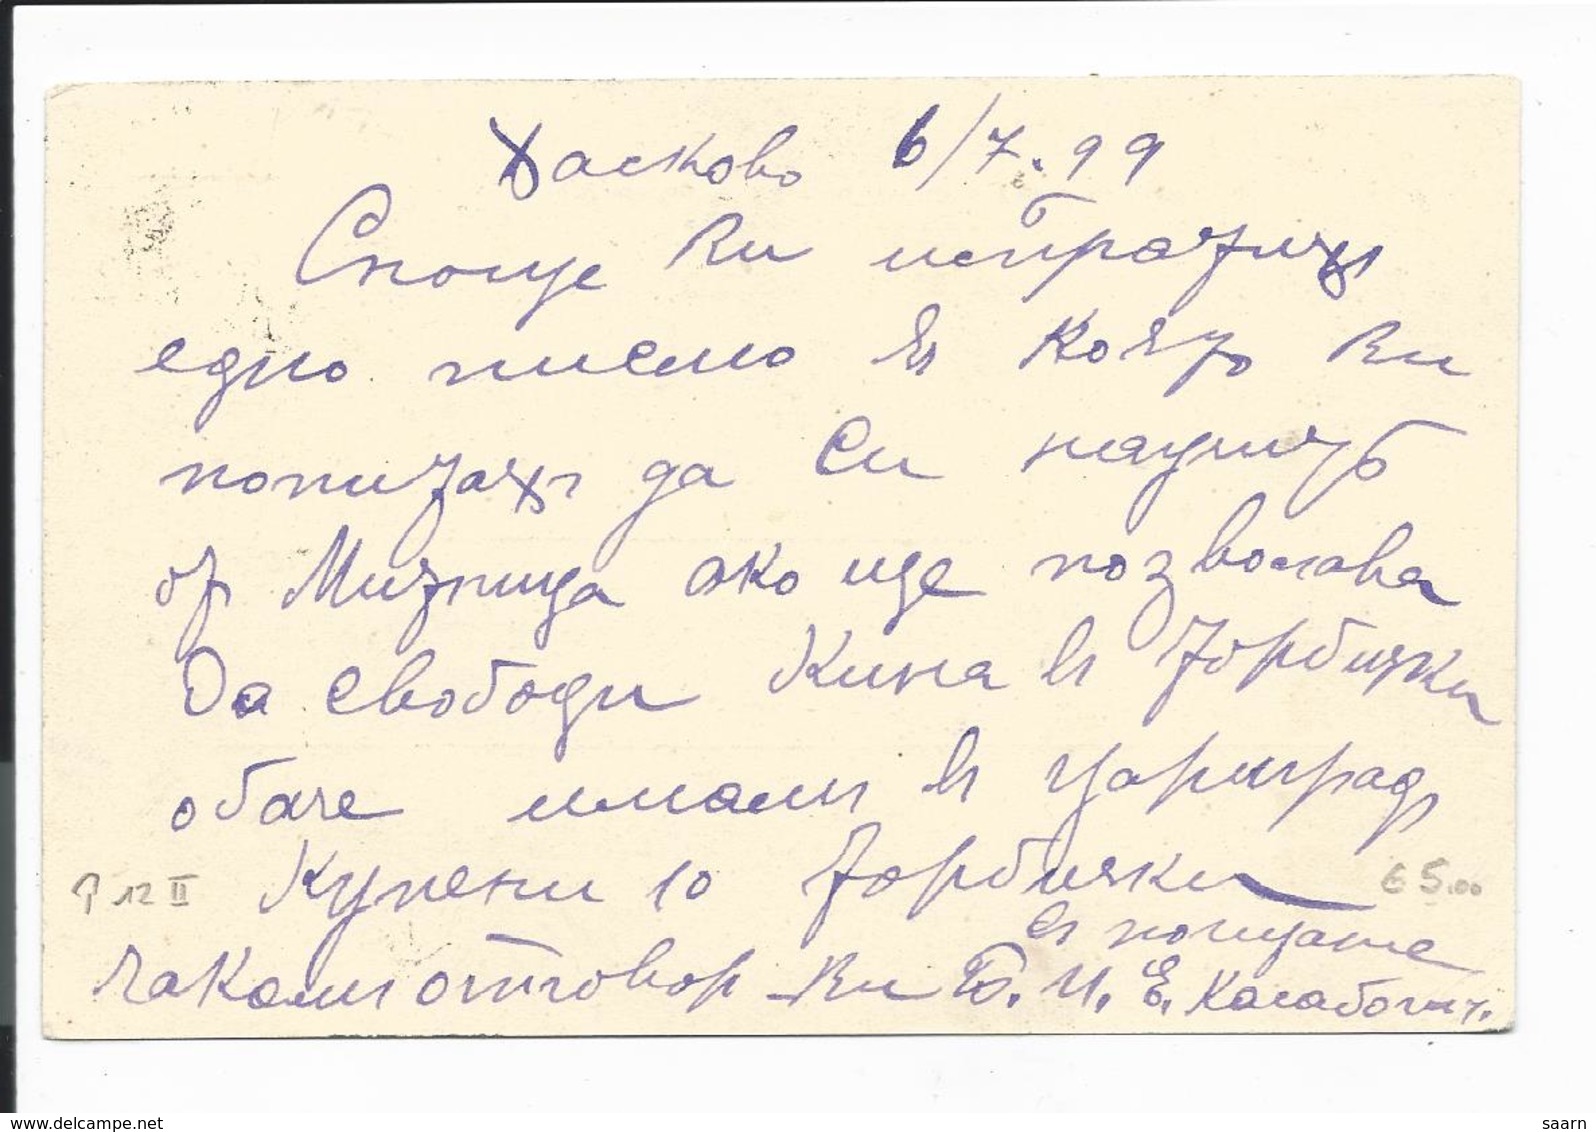 Хасково 6/7.99
Снощи Ви испратихъ
едно писмо въ което Ви
попитахъ да ви научитъ
отъ Митница ако ще позволава
Да свободи Кина въ торбички
обаче имамъ въ Цариградъ
Купени 10 торбички
Чакамъ отговор Ви
съ почитание
И. Е. Калабоги
P 12 II
65.00
www.delcampe.net
saarn